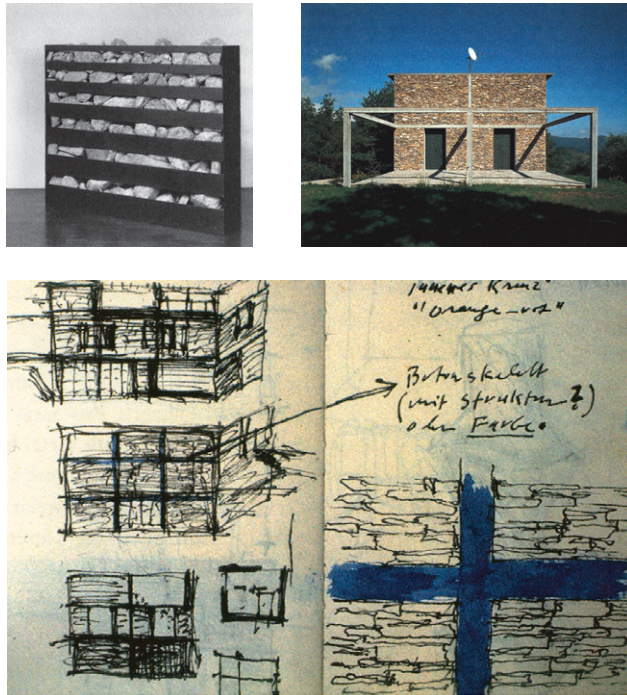 inneres Kreuz
"orange-rot"
Betonskelett
(mit Struktur?)
oder Farbe.